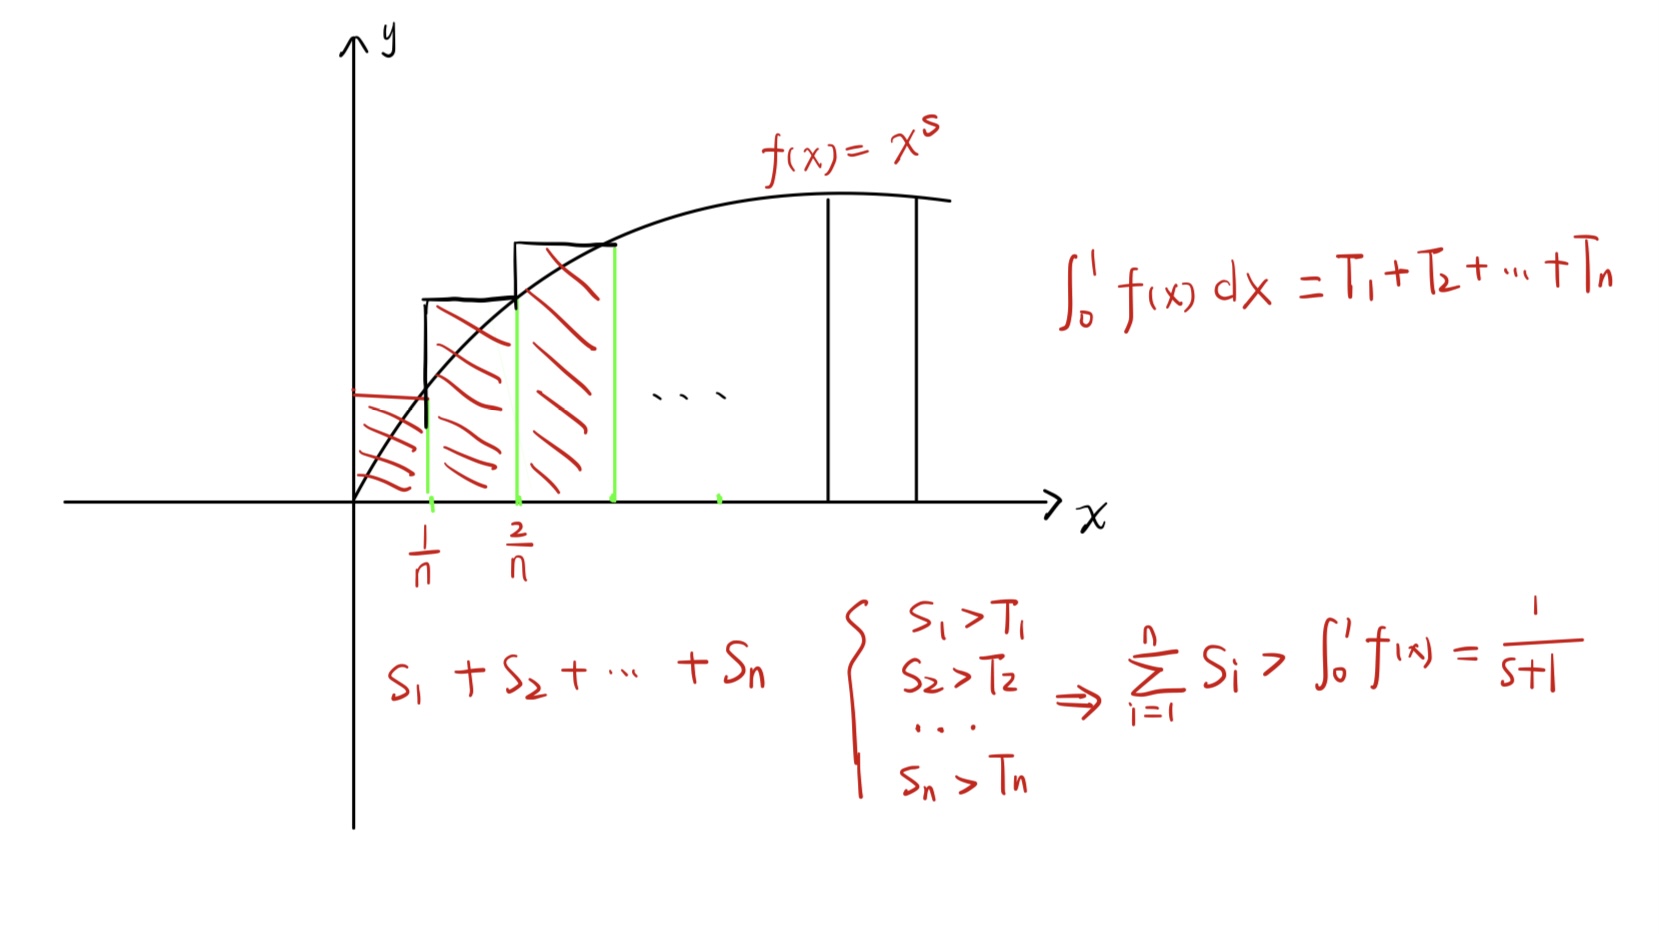 y
f(x) = x^s
∫_0^1 f(x) dx = T_1 + T_2 + ... + T_n
...
x
1/n 2/n
S_1 + S_2 + ... + S_n
{ S_1 > T_1
S_2 > T_2
...
S_n > T_n
⇒ ∑_{i=1}^n S_i > ∫_0^1 f(x) = 1/(s+1)